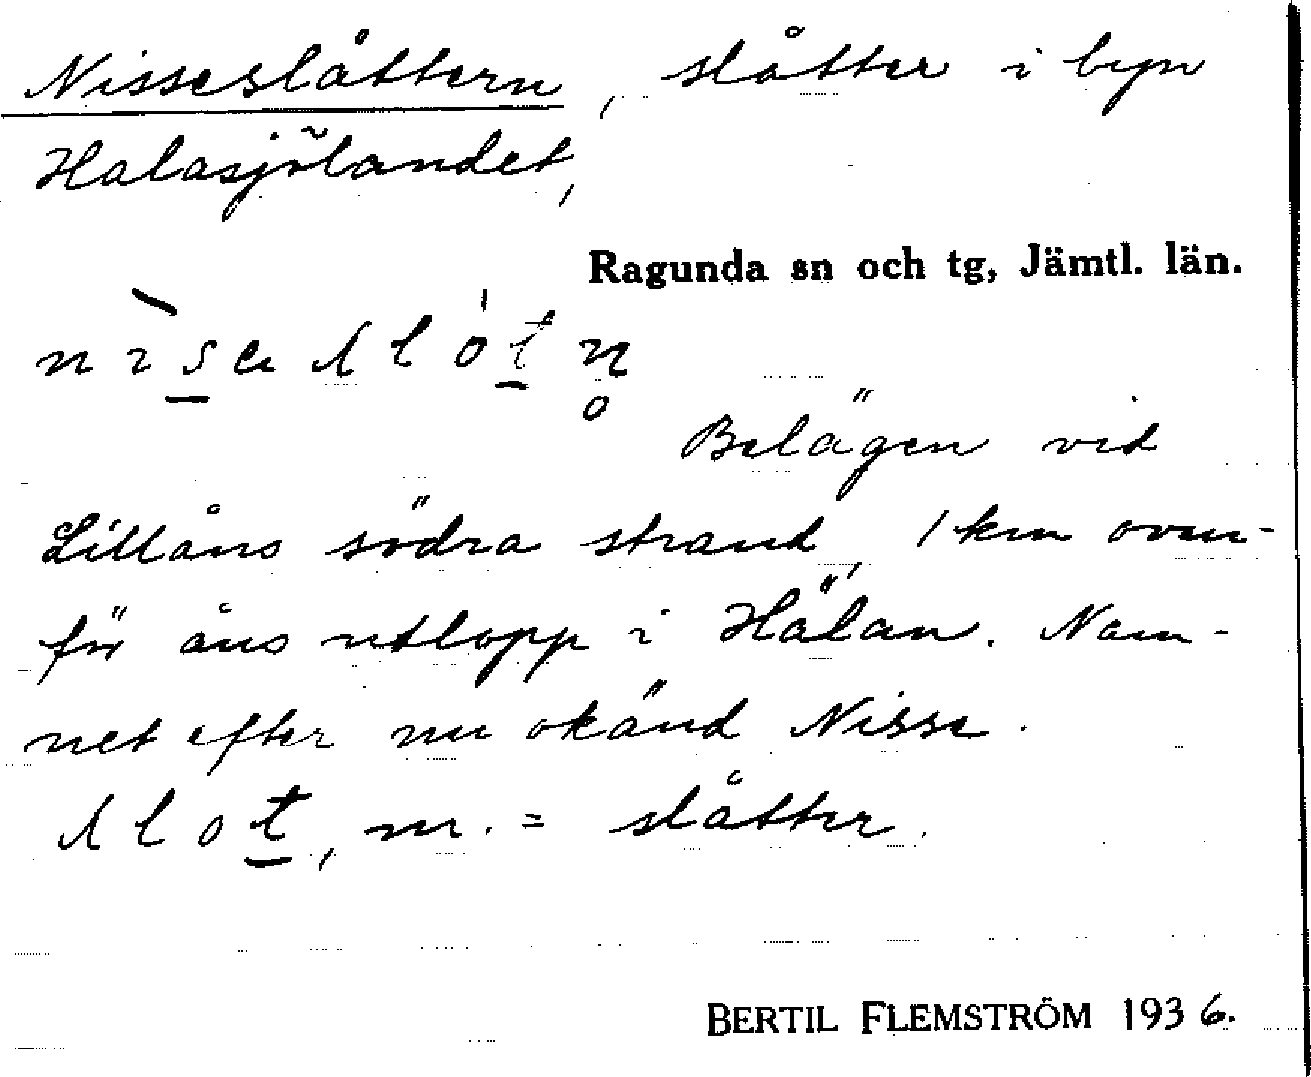 Nisseslåttern, slåtter i byn
Halasjölandet,
Ragunda sn och tg, Jämtl. län.
Belägen vid
Lillåns södra strand, 1 km oven-
för åns utlopp i Hälan. Nam-
net efter nu okänd Nisse.
slot, m. = slåtter.
BERTIL FLEMSTRÖM 1936.